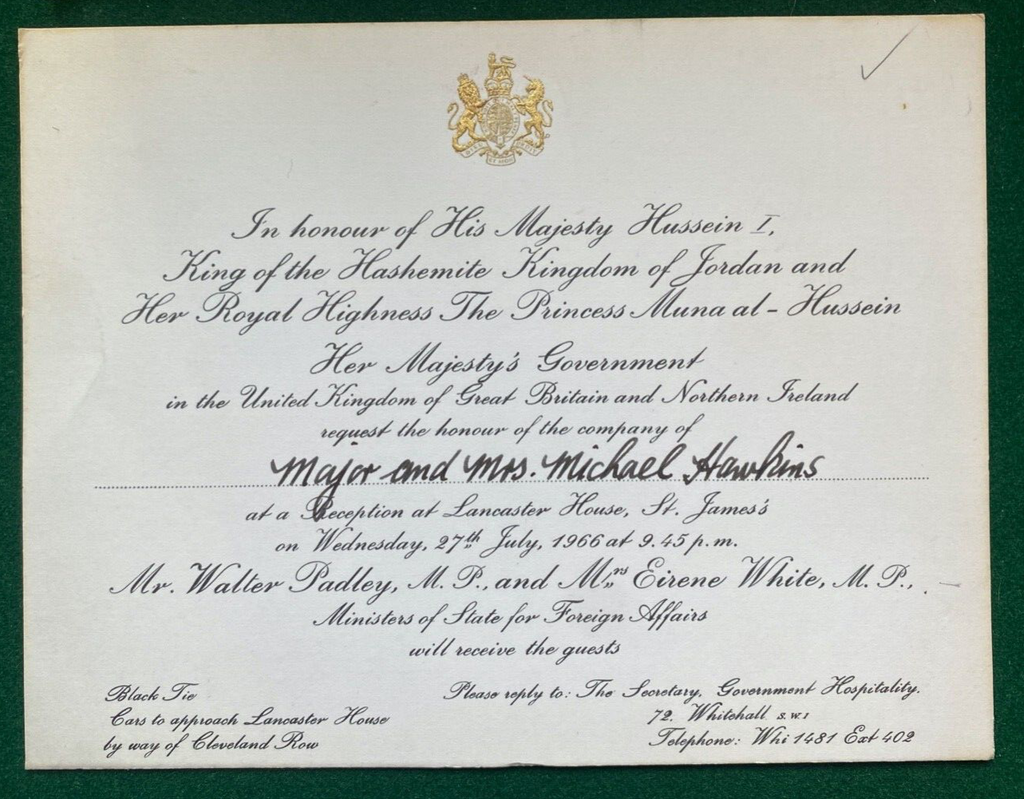 In honour of His Majesty Hussein I,
King of the Hashemite Kingdom of Jordan and
Her Royal Highness The Princess Muna al-Hussein
Her Majesty's Government
in the United Kingdom of Great Britain and Northern Ireland
request the honour of the company of
Major and Mrs. Michael Hawkins
at a Reception at Lancaster House, St. James's
on Wednesday, 27th July, 1966 at 9.45 p.m.
Mr. Walter Padley, M.P., and Mrs Eirene White, M.P.,
Ministers of State for Foreign Affairs
will receive the guests
Black Tie
Cars to approach Lancaster House
by way of Cleveland Row
Please reply to: The Secretary, Government Hospitality.
72. Whitehall S.W.1
Telephone: Whi 1481 Ext 402